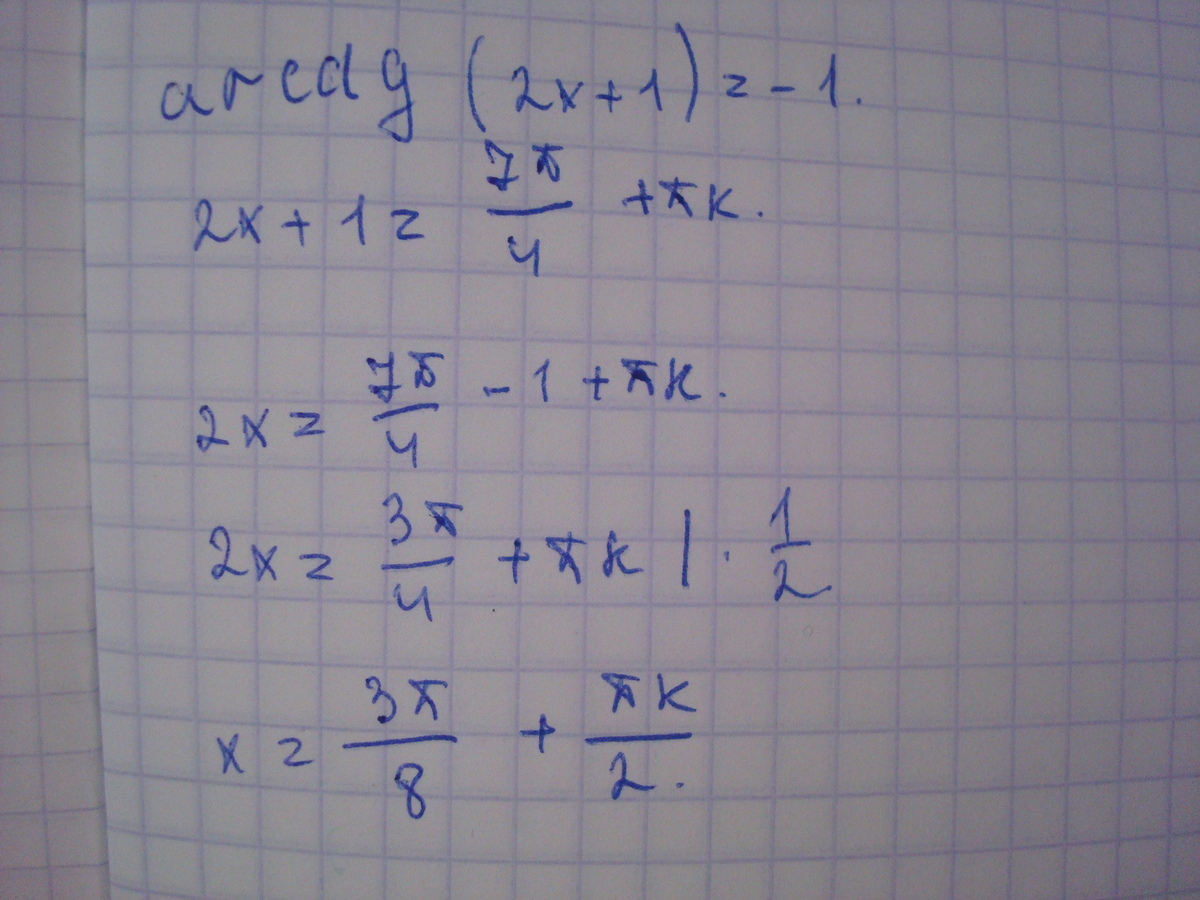 arcctg (2x+1) = -1.
2x + 1 = 7π/4 + πк.
2x = 7π/4 - 1 + πк.
2x = 3π/4 + πк | · 1/2
x = 3π/8 + πк/2.